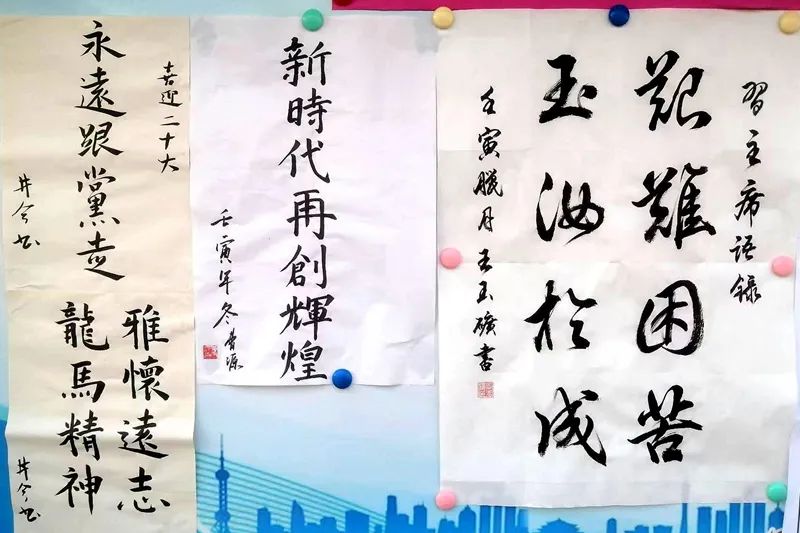 習主席语録
艱難困苦
玉汝於成
壬寅臘月王玉礦書
新時代再創輝煌
壬寅年冬
喜迎二十大
永遠跟黨走
井今书
雅懷遠志
龍馬精神
井今书